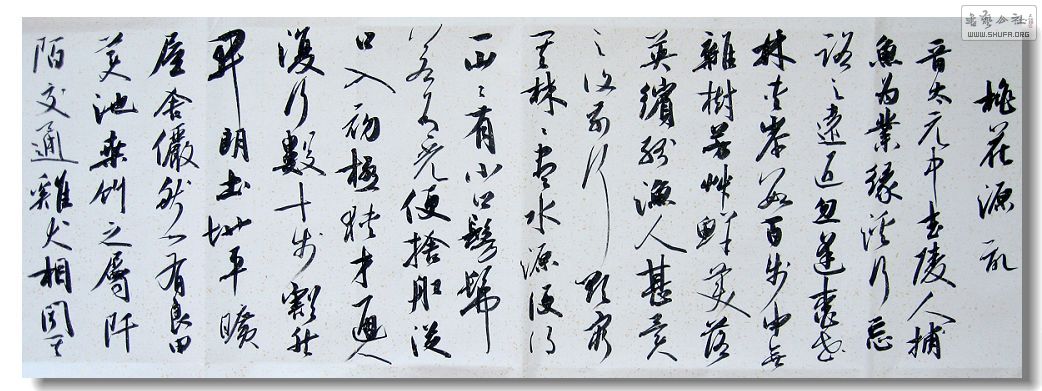 桃花源記
晉太元中武陵人捕
魚为業緣溪行忘
路之遠近忽逢桃花
林夾岸数百步中無
雜樹芳艸鮮美落
英繽紛漁人甚異
之復前行欲窮
其林〻盡水源便得
一山〻有小口髣髴
若有光便捨船從
口入初極狹才通人
復行數十步豁然
開朗土地平曠
屋舍儼然有良田
美池桑竹之屬阡
陌交通雞犬相聞其
书艺公社
WWW.SHUFA.ORG